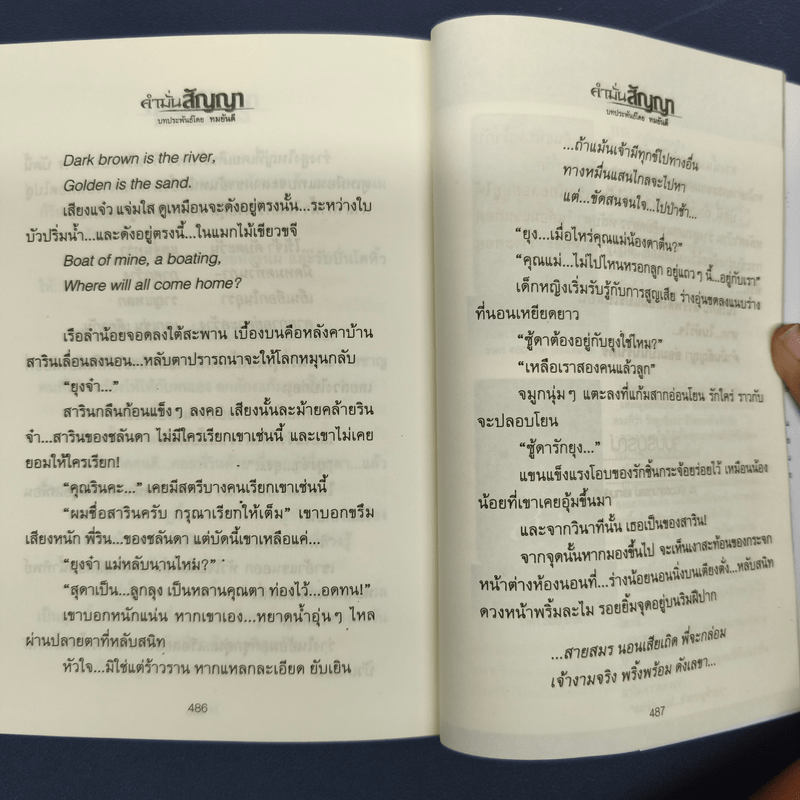 คำมั่นสัญญา
บทประพันธ์โดย ทมยันตี
Dark brown is the river,
Golden is the sand.
เสียงแจ๋ว แจ่มใส ดูเหมือนจะดังอยู่ตรงนั้น...ระหว่างใบ
บัวปริ่มน้ำ...และดังอยู่ตรงนี้...ในแมกไม้เขียวขจี
Boat of mine, a boating,
Where will all come home?
เรือลำน้อยจอดลงใต้สะพาน เบื้องบนคือหลังคาบ้าน
สารินเลื่อนลงนอน...หลับตาปรารถนาจะให้โลกหมุนกลับ
“ยุงจ๋า...”
สารินกลืนก้อนแข็งๆ ลงคอ เสียงนั้นละม้ายคล้ายริน
จ๋า...สารินของชลันดา ไม่มีใครเรียกเขาเช่นนี้ และเขาไม่เคย
ยอมให้ใครเรียก!
“คุณรินคะ...” เคยมีสตรีบางคนเรียกเขาเช่นนี้
“ผมชื่อสารินครับ กรุณาเรียกให้เต็ม” เขาบอกขรึม
เสียงหนัก พี่ริน...ของชลันดา แต่บัดนี้เขาเหลือแค่...
“ยุงจ๋า แม่หลับนานไหม?”
“สุดาเป็น...ลูกลุง เป็นหลานคุณตา ท่องไว้...อดทน!”
เขาบอกหนักแน่น หากเขาเอง...หยาดน้ำอุ่นๆ ไหล
ผ่านปลายตาที่หลับสนิท
หัวใจ...มิใช่แต่ร้าวราน หากแหลกละเอียด ยับเยิน
486
คำมั่นสัญญา
บทประพันธ์โดย ทมยันตี
...ถ้าแม้นเจ้ามีทุกข์ไปทางอื่น
ทางหมื่นแสนไกลจะไปหา
แต่...ขัดสนจนใจ...ไปป่าช้า...
“ยุง...เมื่อไหร่คุณแม่น้องดาตื่น?”
“คุณแม่...ไม่ไปไหนหรอกลูก อยู่แถวๆ นี้...อยู่กับเรา”
เด็กหญิงเริ่มรับรู้กับการสูญเสีย ร่างอุ่นขดลงแนบร่าง
ที่นอนเหยียดยาว
“ซู้ดาต้องอยู่กับยุงใช่ไหม?”
“เหลือเราสองคนแล้วลูก”
จมูกนุ่มๆ แตะลงที่แก้มสากอ่อนโยน รักใคร่ ราวกับ
จะปลอบโยน
“ซู้ดารักยุง...”
แขนแข็งแรงโอบของรักชิ้นกระจ้อยร่อยไว้ เหมือนน้อง
น้อยที่เขาเคยอุ้มขึ้นมา
และจากวินาทีนั้น เธอเป็นของสาริน!
จากจุดนั้นหากมองขึ้นไป จะเห็นเงาสะท้อนของกระจก
หน้าต่างห้องนอนที่...ร่างน้อยนอนนิ่งบนเตียงตั่ง...หลับสนิท
ดวงหน้าพริ้มละไม รอยยิ้มจุดอยู่บนริมฝีปาก
...สายสมร นอนเสียเถิด พี่จะกล่อม
เจ้างามจริง พริ้งพร้อม ดังเลขา...
487